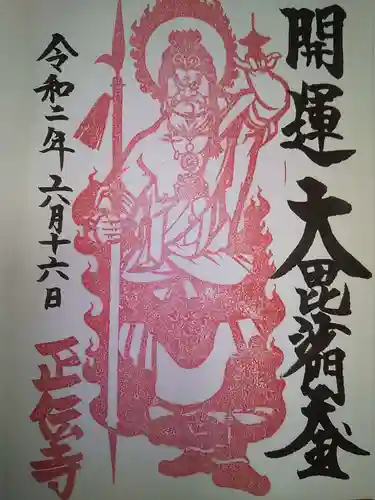 開運 大毘沙門天
令和二年 六月十六日
正伝寺